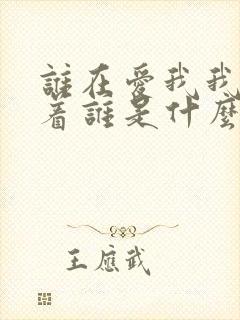 誰在愛我我
着誰是什麼
王應武